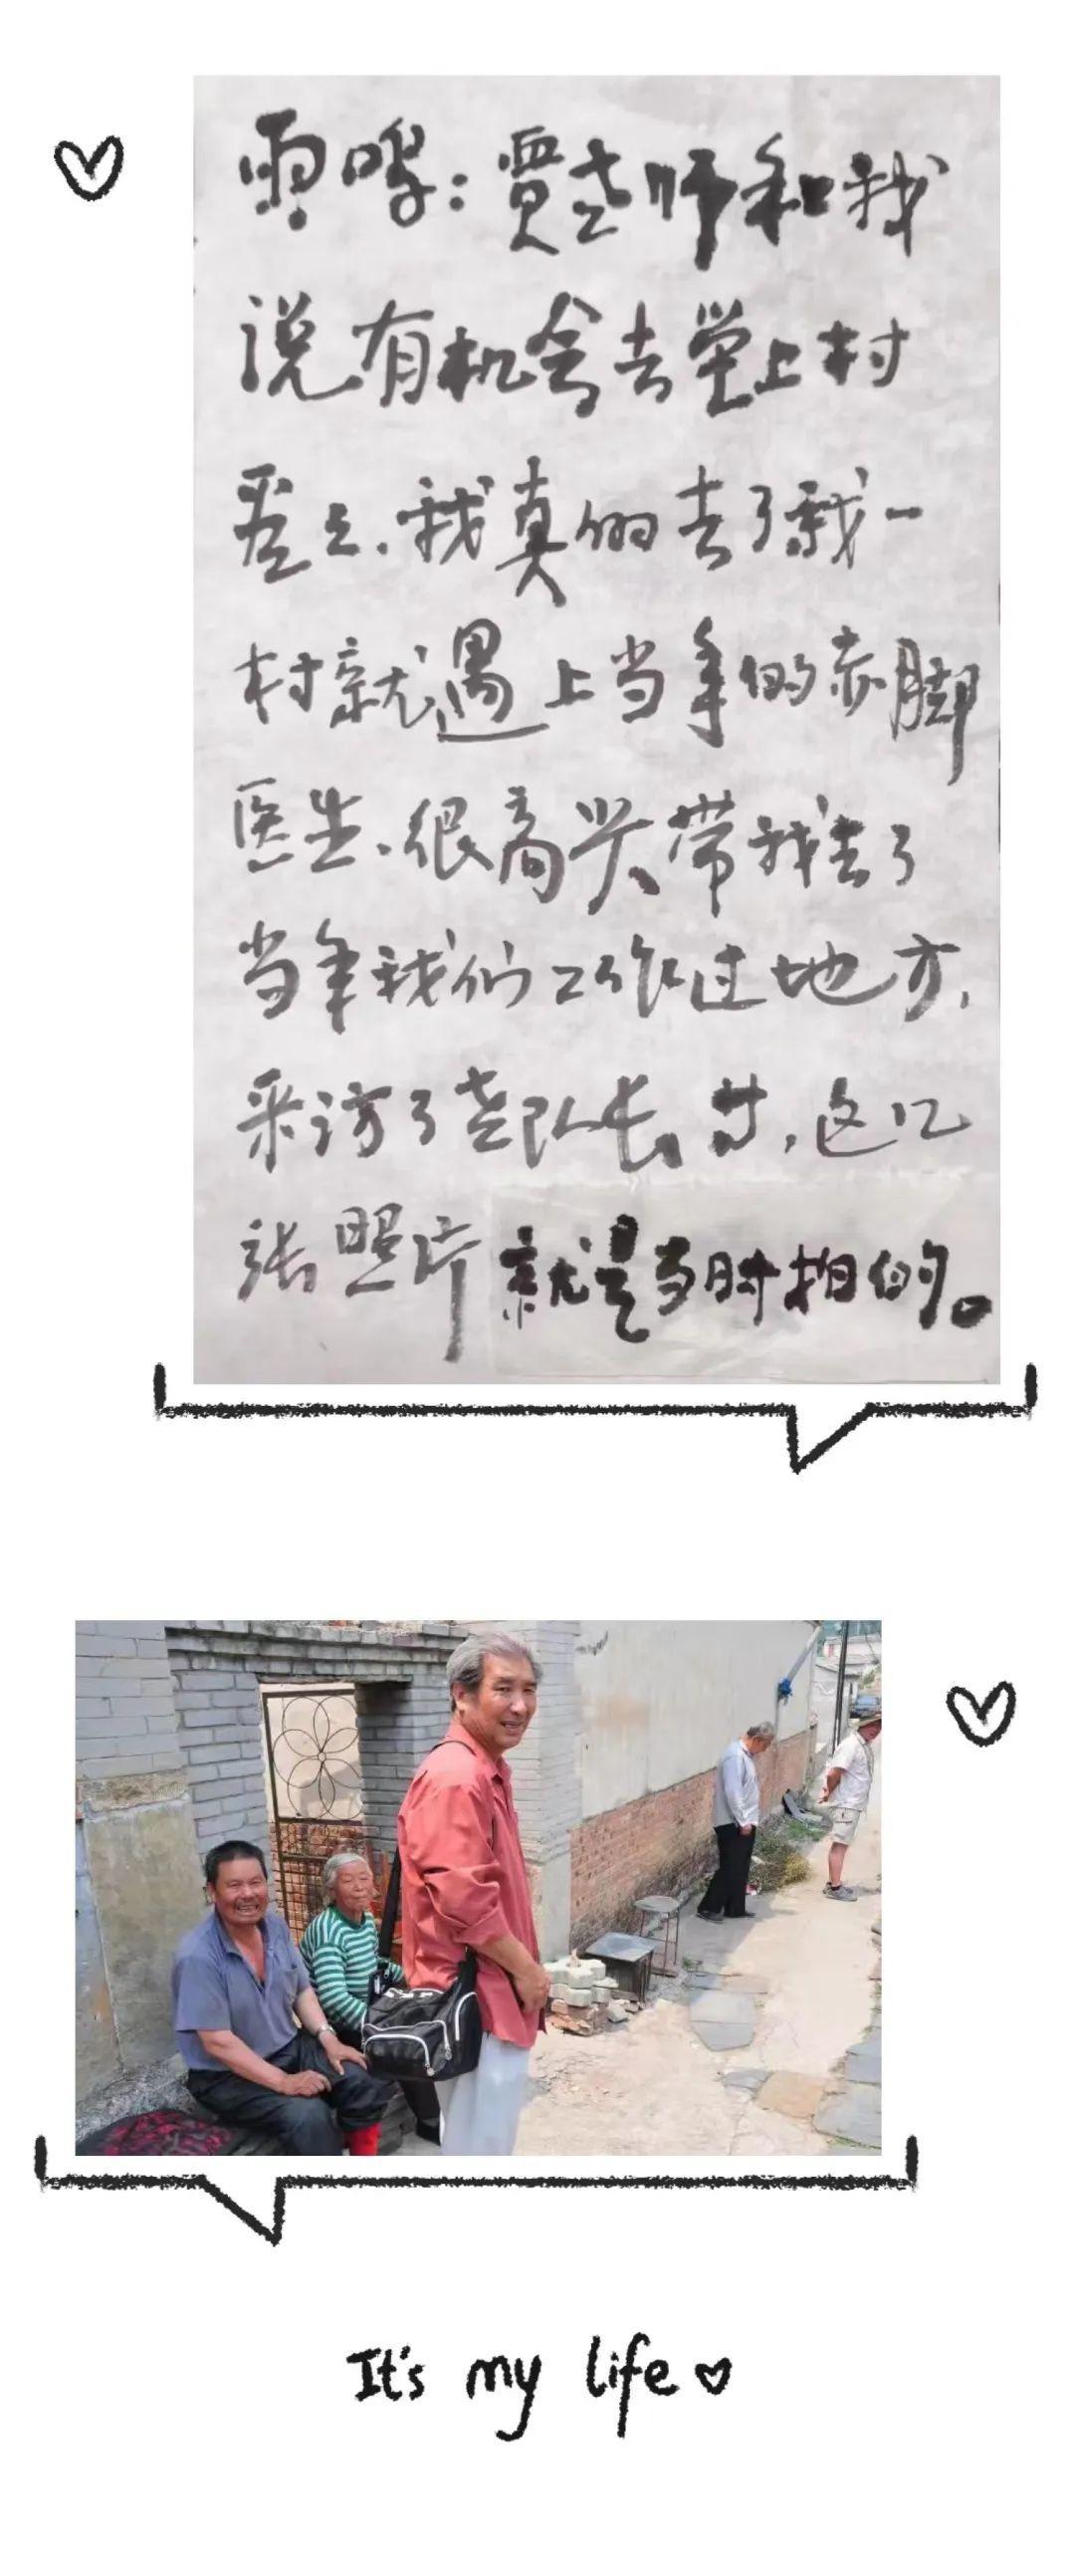 雨鸣：贾老师和我
说有机会去堂上村
看之、我真的去了我一
村就遇上当年的赤脚
医生、很高兴带我去了
当年我们工作过地方，
采访了老队长等，这几
张照片就是当时拍的。
It's my life